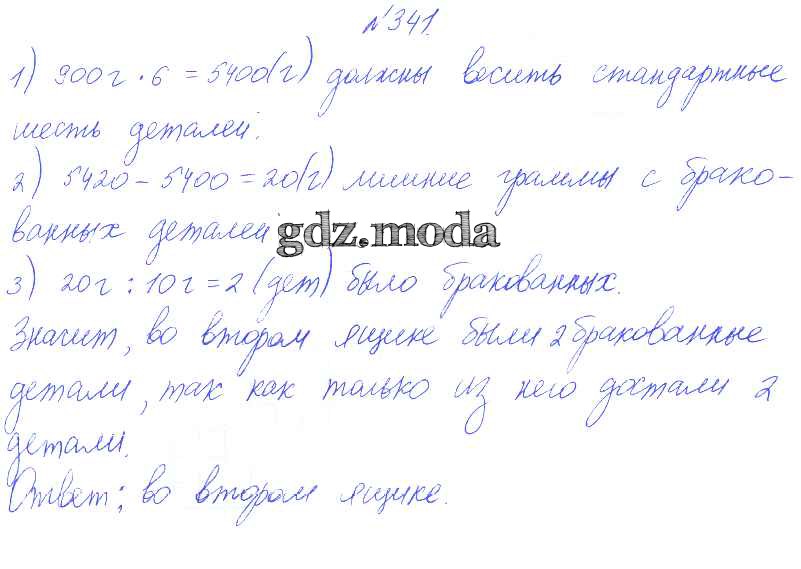 №341.
1) 900г · 6 = 5400(г) должны весить стандартные
шесть деталей.
2) 5420 - 5400 = 20(г) лишние граммы с брако-
ванных деталей
gdz.moda
3) 20г : 10г = 2 (дет) было бракованных.
Значит, во втором ящике были 2 бракованные
детали, так как только из него достали 2
детали.
Ответ: во втором ящике.